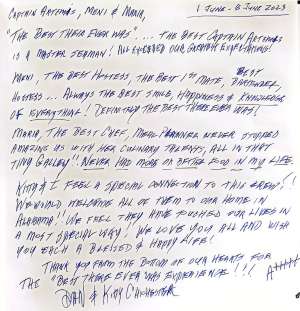 CAPTAIN ANTHONAS, MENI & MARIA, 1 JUNE - 8 JUNE 2023
"THE BEST THEIR EVER WAS".... THE BEST CAPTAIN ANTHONAS
IS A MASTER SEAMAN! ALL EXCEEDED OUR GREATEST EXPECTATIONS!
MENI, THE BEST HOSTESS, THE BEST 1ST MATE, BEST BARTENDER,
HOSTESS... ALWAYS THE BEST SMILE, HAPPINESS & KNOWLEDGE
OF EVERYTHING! DEFINITELY THE BEST THERE EVER WAS!
MARIA, THE BEST CHEF, MEAL PLANNER NEVER STOPPED
AMAZING US WITH HER CULINARY TALENTS, ALL IN THAT
TINY GALLEY!! NEVER HAD MORE OR BETTER FOOD IN MY LIFE.
KITTY & I FEEL A SPECIAL CONNECTION TO THIS CREW!!
WE WOULD WELCOME ALL OF THEM TO OUR HOME IN
ALABAMA!! WE FEEL THEY HAVE PUSHED OUR LIVES IN
A MOST SPECIAL WAY! WE LOVE YOU ALL AND WISH
YOU EACH A BLESSED & HAPPY LIFE!
THANK YOU FROM THE BOTTOM OF OUR HEARTS FOR
THE "BEST THERE EVER WAS EXPERIENCE"!!!
& KITTY CHICHESTER